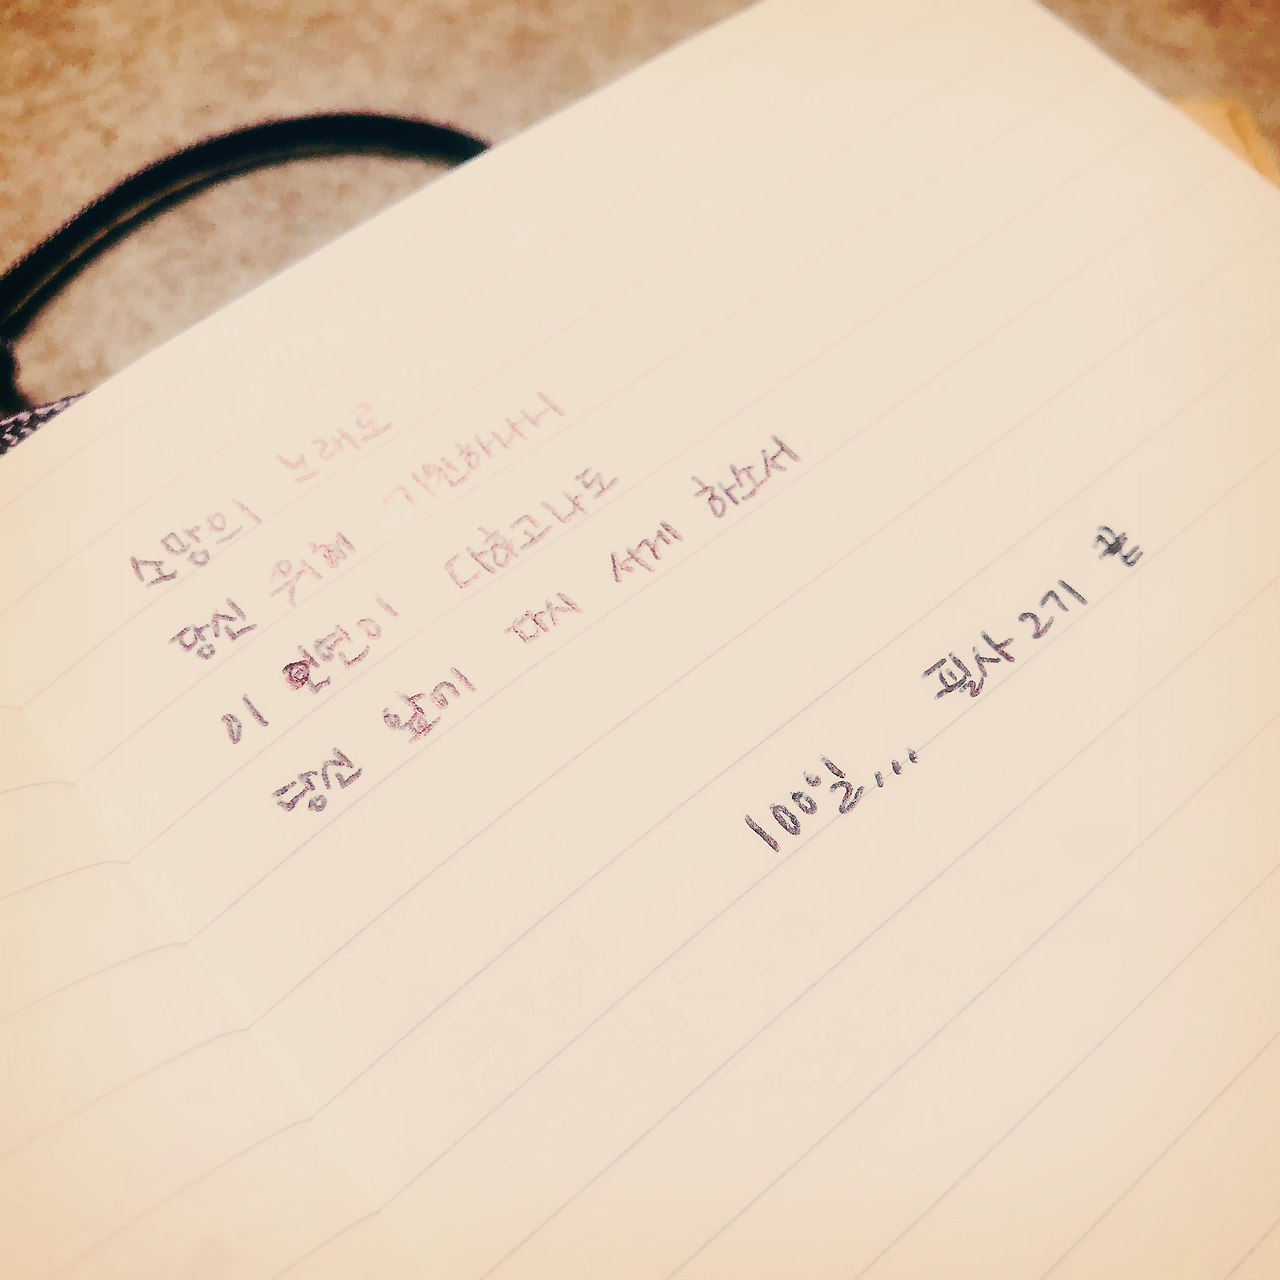 소망의 노래로
당신 위해 기원하나니
이 인연이 다하고나도
당신 앞에 다시 서게 하소서
100일... 필사 2기 끝